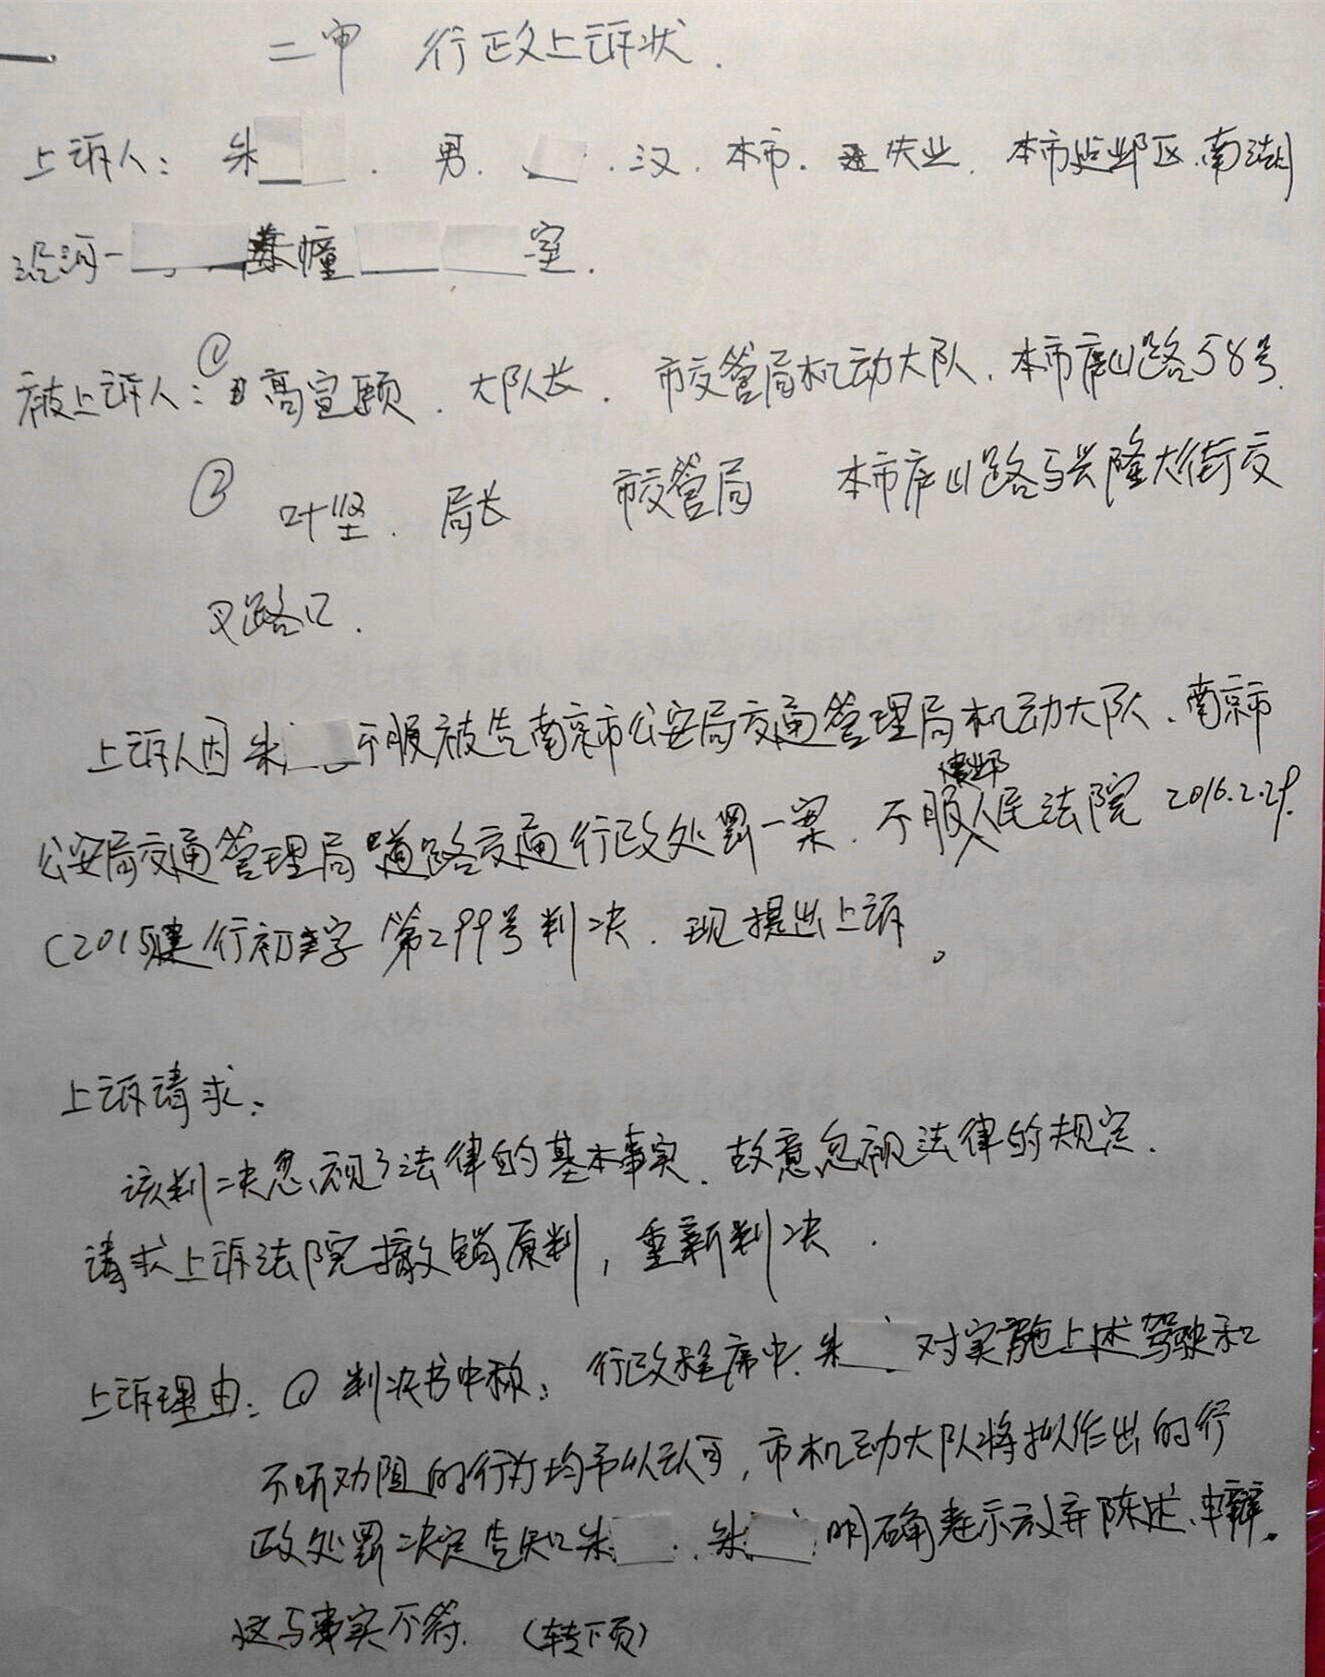 二审 行政上诉状.
上诉人: 朱 . 男. . 汉. 本市. 失业. 本市建邺区.南湖
沿河一 幢 室.
被上诉人: ① 高宣颐. 大队长. 市交管局机动大队. 本市庐山路58号.
② 叶坚. 局长 市交管局 本市庐山路与兴隆大街交
叉路口.
上诉人因朱 不服被告南京市公安局交通管理局机动大队、南京市
公安局交通管理局道路交通行政处罚一案. 不服建邺人民法院 2016.2.29.
(2015建行初字第299号判决. 现提出上诉。
上诉请求:
该判决忽视了法律的基本事实. 故意忽视法律的规定.
请求上诉法院撤销原判, 重新判决.
上诉理由: ① 判决书中称: 行政程序中. 朱 对实施上述驾驶和
不听劝阻的行为均予以认可, 市机动大队将拟作出的行
政处罚决定告知朱 . 朱 明确表示放弃陈述、申辩.
这与事实不符. (转下页)